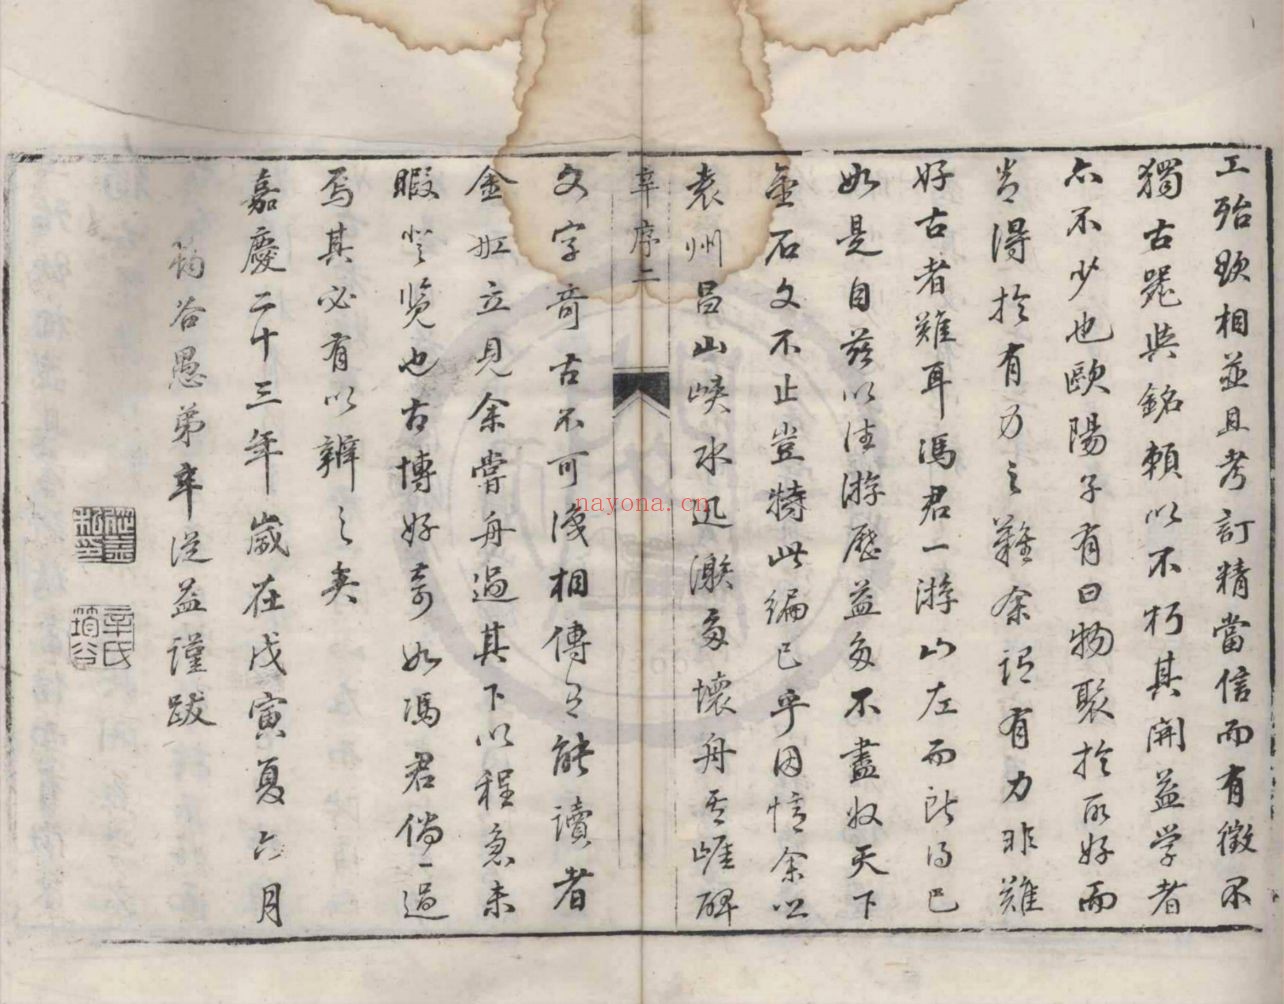 工殆歐相並且考訂精當信而有徵不
獨古器與銘賴以不朽其開益学者
亦不少也歐陽子有曰物聚於所好而
常得於有力之難余謂有力非難
好古者難耳馮君一游山左而所得已
如是自茲以往游歷益多不盡收天下
金石文不止豈特此編已乎因憶余
袁州昌山峽水迅激多壞舟石崖碑
辛序二
文字奇古不可復相傳有能讀者
金虹立見余嘗舟過其下以程急未
暇登览也古博好奇如馮君倘一過
焉其必有以辨之矣
嘉慶二十三年歲在戊寅夏六月
筠谷愚弟辛從益謹跋
從益私印
辛氏筠谷
nayona.cn